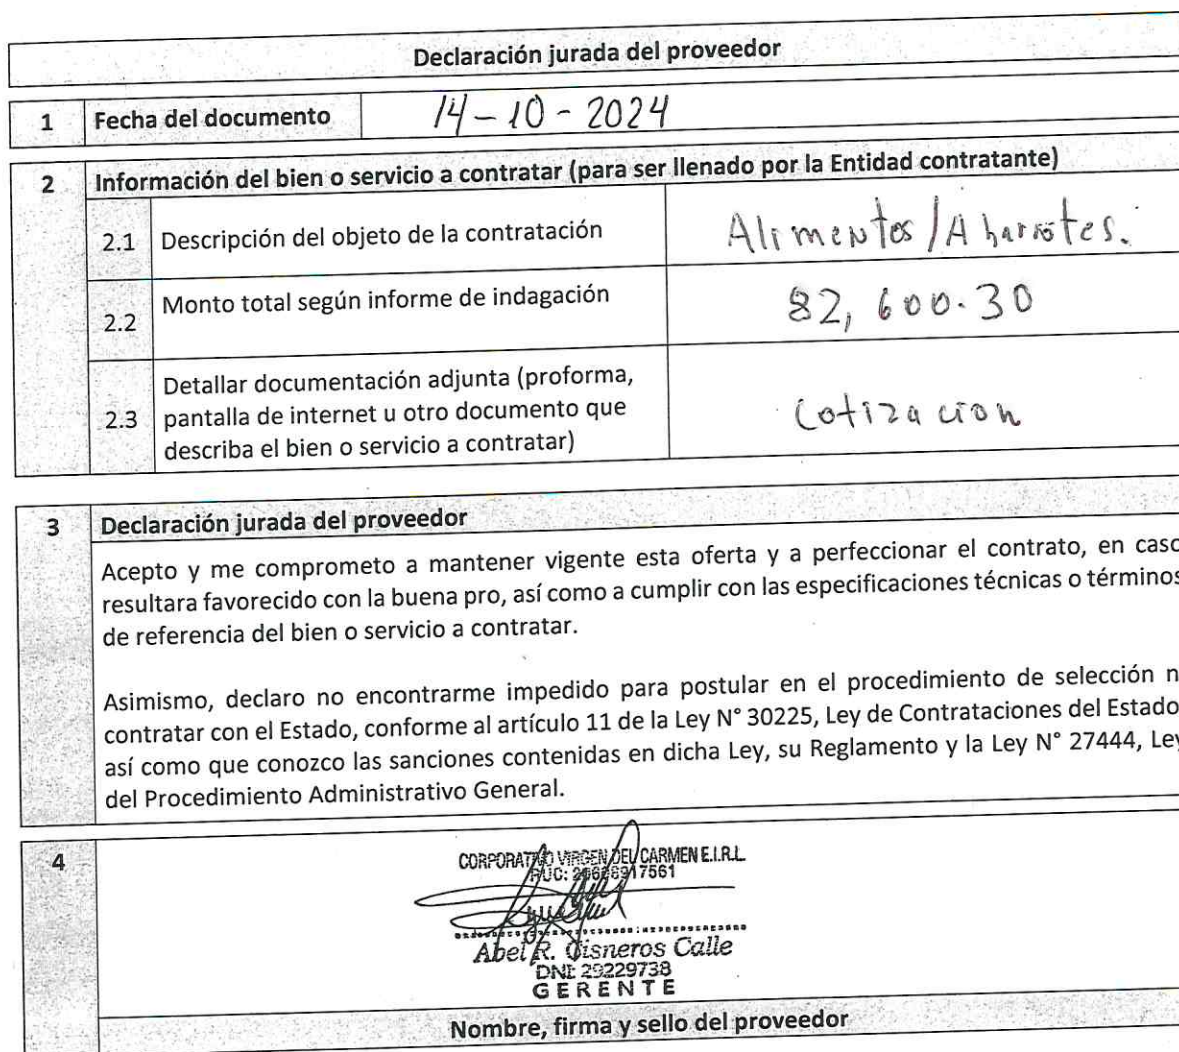 Declaración jurada del proveedor
1 Fecha del documento 14-10-2024
2 Información del bien o servicio a contratar (para ser llenado por la Entidad contratante)
2.1 Descripción del objeto de la contratación Alimentos/Abarrotes.
2.2 Monto total según informe de indagación 82,600.30
2.3 Detallar documentación adjunta (proforma,
pantalla de internet u otro documento que
describa el bien o servicio a contratar) Cotización
3 Declaración jurada del proveedor
Acepto y me comprometo a mantener vigente esta oferta y a perfeccionar el contrato, en caso
resultara favorecido con la buena pro, así como a cumplir con las especificaciones técnicas o términos
de referencia del bien o servicio a contratar.
Asimismo, declaro no encontrarme impedido para postular en el procedimiento de selección n
contratar con el Estado, conforme al artículo 11 de la Ley N° 30225, Ley de Contrataciones del Estado
así como que conozco las sanciones contenidas en dicha Ley, su Reglamento y la Ley N° 27444, Ley
del Procedimiento Administrativo General.
4
CORPORATIVO VIRGEN DEL CARMEN E.I.R.L.
RUC:
Abel R. Cisneros Calle
DNI: 29229738
GERENTE
Nombre, firma y sello del proveedor